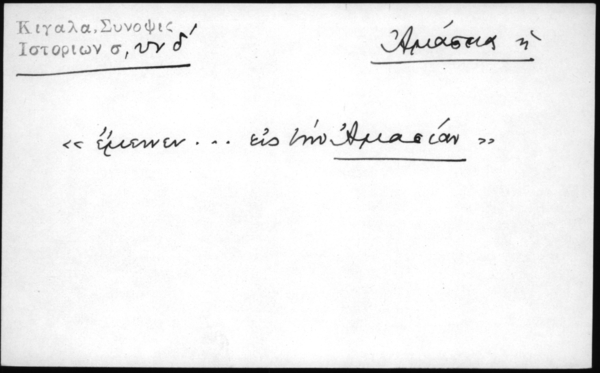 Κιγαλα, Συνοψις
Ιστοριων σ, υν δ´
Ἀμάσεια ἡ
« ἔμεινεν ... εἰς τὴν Ἀμασείαν »